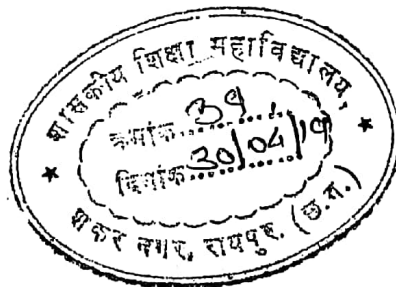 शासकीय शिक्षा महाविद्यालय,
क्रमांक 39
दिनांक 30/04/19
शंकर नगर, रायपुर. (छ.ग.)